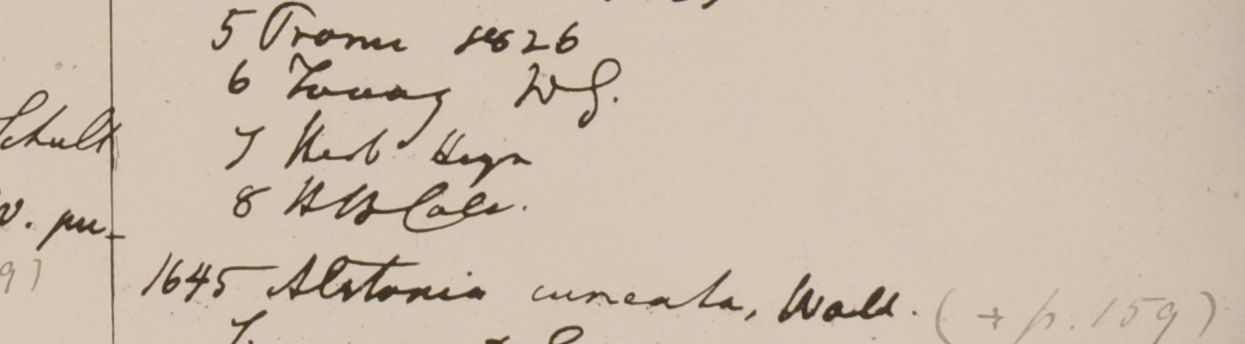 Schult
v. pu-
9)
5 Prome 1826
6 Tavoy W G.
7 Herb Heyn
8 H B Calc.
1645 Alstonia cuneata, Wall. (→ p. 159)